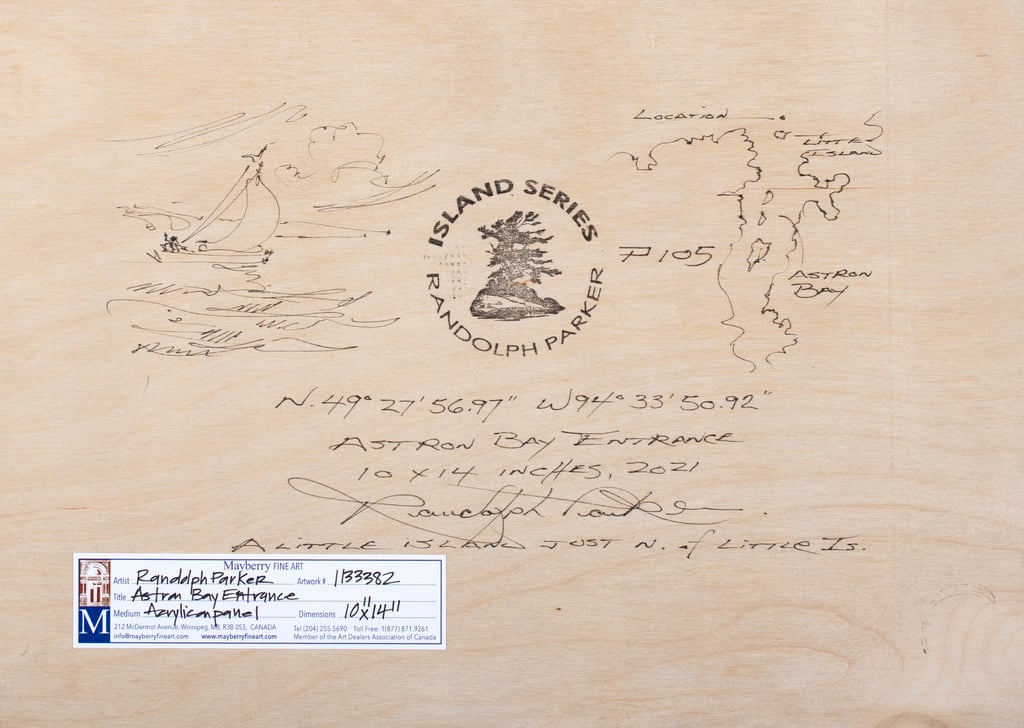 LOCATION
LITTLE
ISLAND
ISLAND SERIES
P105
ASTRON
BAY
RANDOLPH PARKER
N. 49° 27' 56.97" W 94° 33' 50.92"
ASTRON BAY ENTRANCE
10 x 14 INCHES, 2021
Randolph Parker
A LITTLE ISLAND JUST N. of LITTLE IS.
Mayberry FINE ART
Artist Randolph Parker Artwork # 1133382
Title Astron Bay Entrance
Medium Acrylic on panel Dimensions 10"x14"
M
212 McDermot Avenue, Winnipeg, MB, R3B 0S3, CANADA Tel (204) 255.5690 Toll Free: 1(877) 871.9261
info@mayberryfineart.com www.mayberryfineart.com Member of the Art Dealers Association of Canada